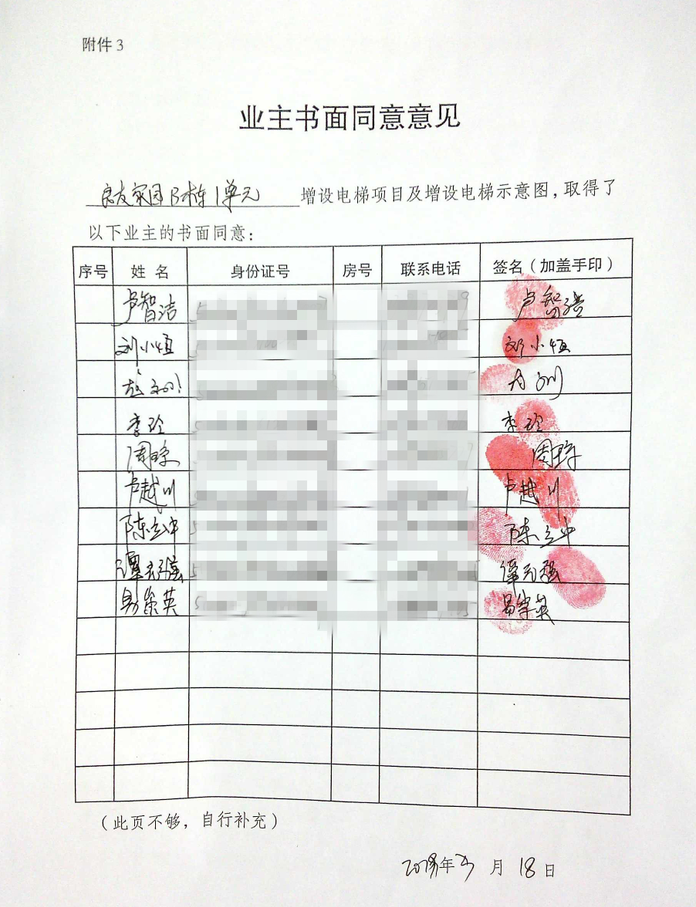 附件3
业主书面同意意见
良友家园B栋1单元 增设电梯项目及增设电梯示意图，取得了
以下业主的书面同意：
序号 姓名 身份证号 房号 联系电话 签名（加盖手印）
卢智洁 卢智洁
刘小恒 刘小恒
李玲 李玲
周琼 周琼
卢越川 卢越川
陈立中 陈立中
谭元强 谭元强
易崇英 易崇英
（此页不够，自行补充）
年3月18日